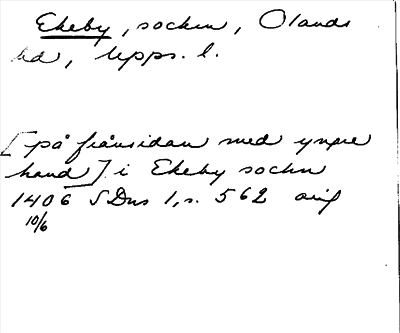 Ekeby, socken, Olands
hd, Upps. l.
[på frånsidan med yngre
hand] i Ekeby sochn
1406 SDns 1, s. 562 avs
10/6